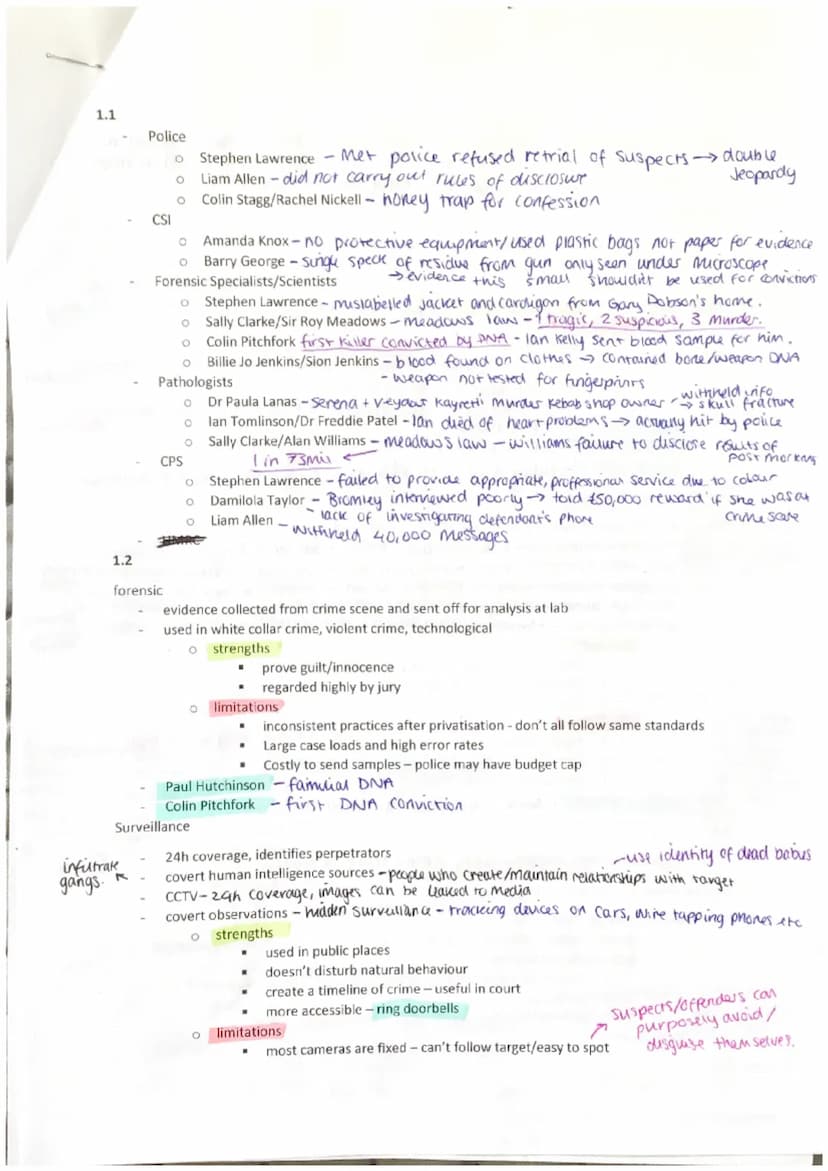 1.1
- Police
o Stephen Lawrence - Met police refused retrial of suspects → double jeopardy
o Liam Allen - did not carry out rules of disclosure
o Colin Stagg/Rachel Nickell - honey trap for confession
- CSI
o Amanda Knox - no protective equipment/used plastic bags not paper for evidence
o Barry George - single speck of residue from gun only seen under microscope
→ evidence this small shouldn't be used for convictions
- Forensic Specialists/Scientists
o Stephen Lawrence - mislabelled jacket and cardigan from Gary Dobson's home.
o Sally Clarke/Sir Roy Meadows - meadows law - 1 tragic, 2 suspicious, 3 murder.
o Colin Pitchfork first killer convicted by DNA - Ian Kelly sent blood sample for him.
o Billie Jo Jenkins/Sion Jenkins - blood found on clothes → contained bone/weapon DNA
- weapon not tested for fingerprints
- Pathologists
o Dr Paula Lanas - Serena + Veydat Kayretli murder kebab shop owner → withheld info skull fracture
o Ian Tomlinson/Dr Freddie Patel - Ian died of heart problems → actually hit by police
o Sally Clarke/Alan Williams - meadows law - williams failure to disclose results of post mortem
1 in 73mil ←
- CPS
o Stephen Lawrence - failed to provide appropriate, proffessional service due to colour
o Damilola Taylor - Bromley interviewed poorly → told £50,000 reward if she was at crime scene
o Liam Allen - lack of investigating defendant's phone
- withheld 40,000 messages
-
1.2
forensic
- evidence collected from crime scene and sent off for analysis at lab
- used in white collar crime, violent crime, technological
o strengths
▪ prove guilt/innocence
▪ regarded highly by jury
o limitations
▪ inconsistent practices after privatisation - don't all follow same standards
▪ Large case loads and high error rates
▪ Costly to send samples – police may have budget cap
- Paul Hutchinson - familial DNA
- Colin Pitchfork - first DNA conviction
Surveillance
- 24h coverage, identifies perpetrators
- use identity of dead babies
infiltrate gangs. ← - covert human intelligence sources - people who create/maintain relationships with target
- CCTV - 24h coverage, images can be leaked to media
- covert observations - hidden surveillance - tracking devices on cars, wire tapping phones etc
o strengths
▪ used in public places
▪ doesn't disturb natural behaviour
▪ create a timeline of crime – useful in court
▪ more accessible – ring doorbells
o limitations
▪ most cameras are fixed – can't follow target/easy to spot
↗ suspects/offenders can
purposely avoid/
disguise themselves.